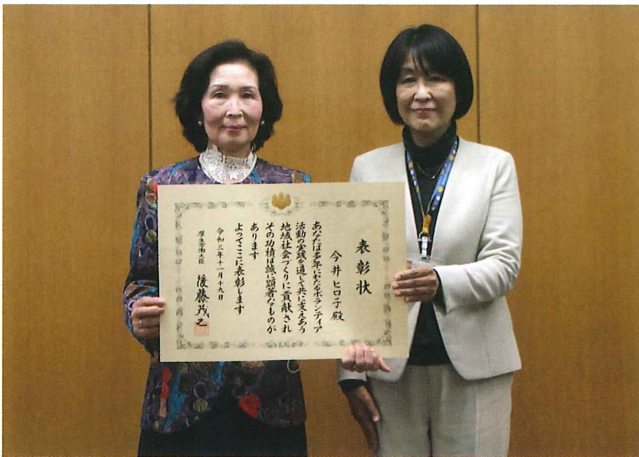 表彰状
今井ヒロ子殿
あなたは多年にわたるボランティア
活動の実践を通して共に支えあう
地域社会づくりに貢献され
その功績は誠に顕著なものが
あります
よってここに表彰します
令和三年十一月十九日
厚生労働大臣 後藤茂之